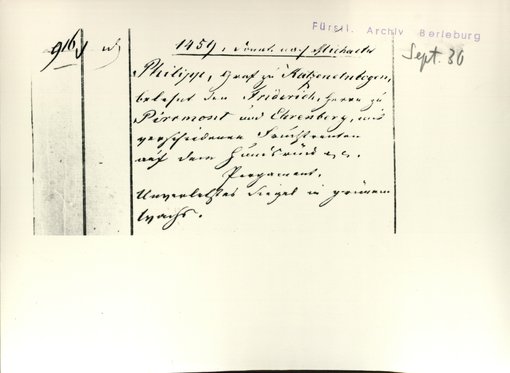 Fürstl. Archiv Berleburg
Sept. 30
1459, Sonnt. nach Michaelis
Philipp, Graf zu Katzenelnbogen,
belehnt den Friderich, Herrn zu
Pirremont und Ehrenberg, mit
verschiedenen Fruchtrenten
auf dem Hundsrück etc.
Pergament.
Unverletztes Siegel in grünem
Wachs.